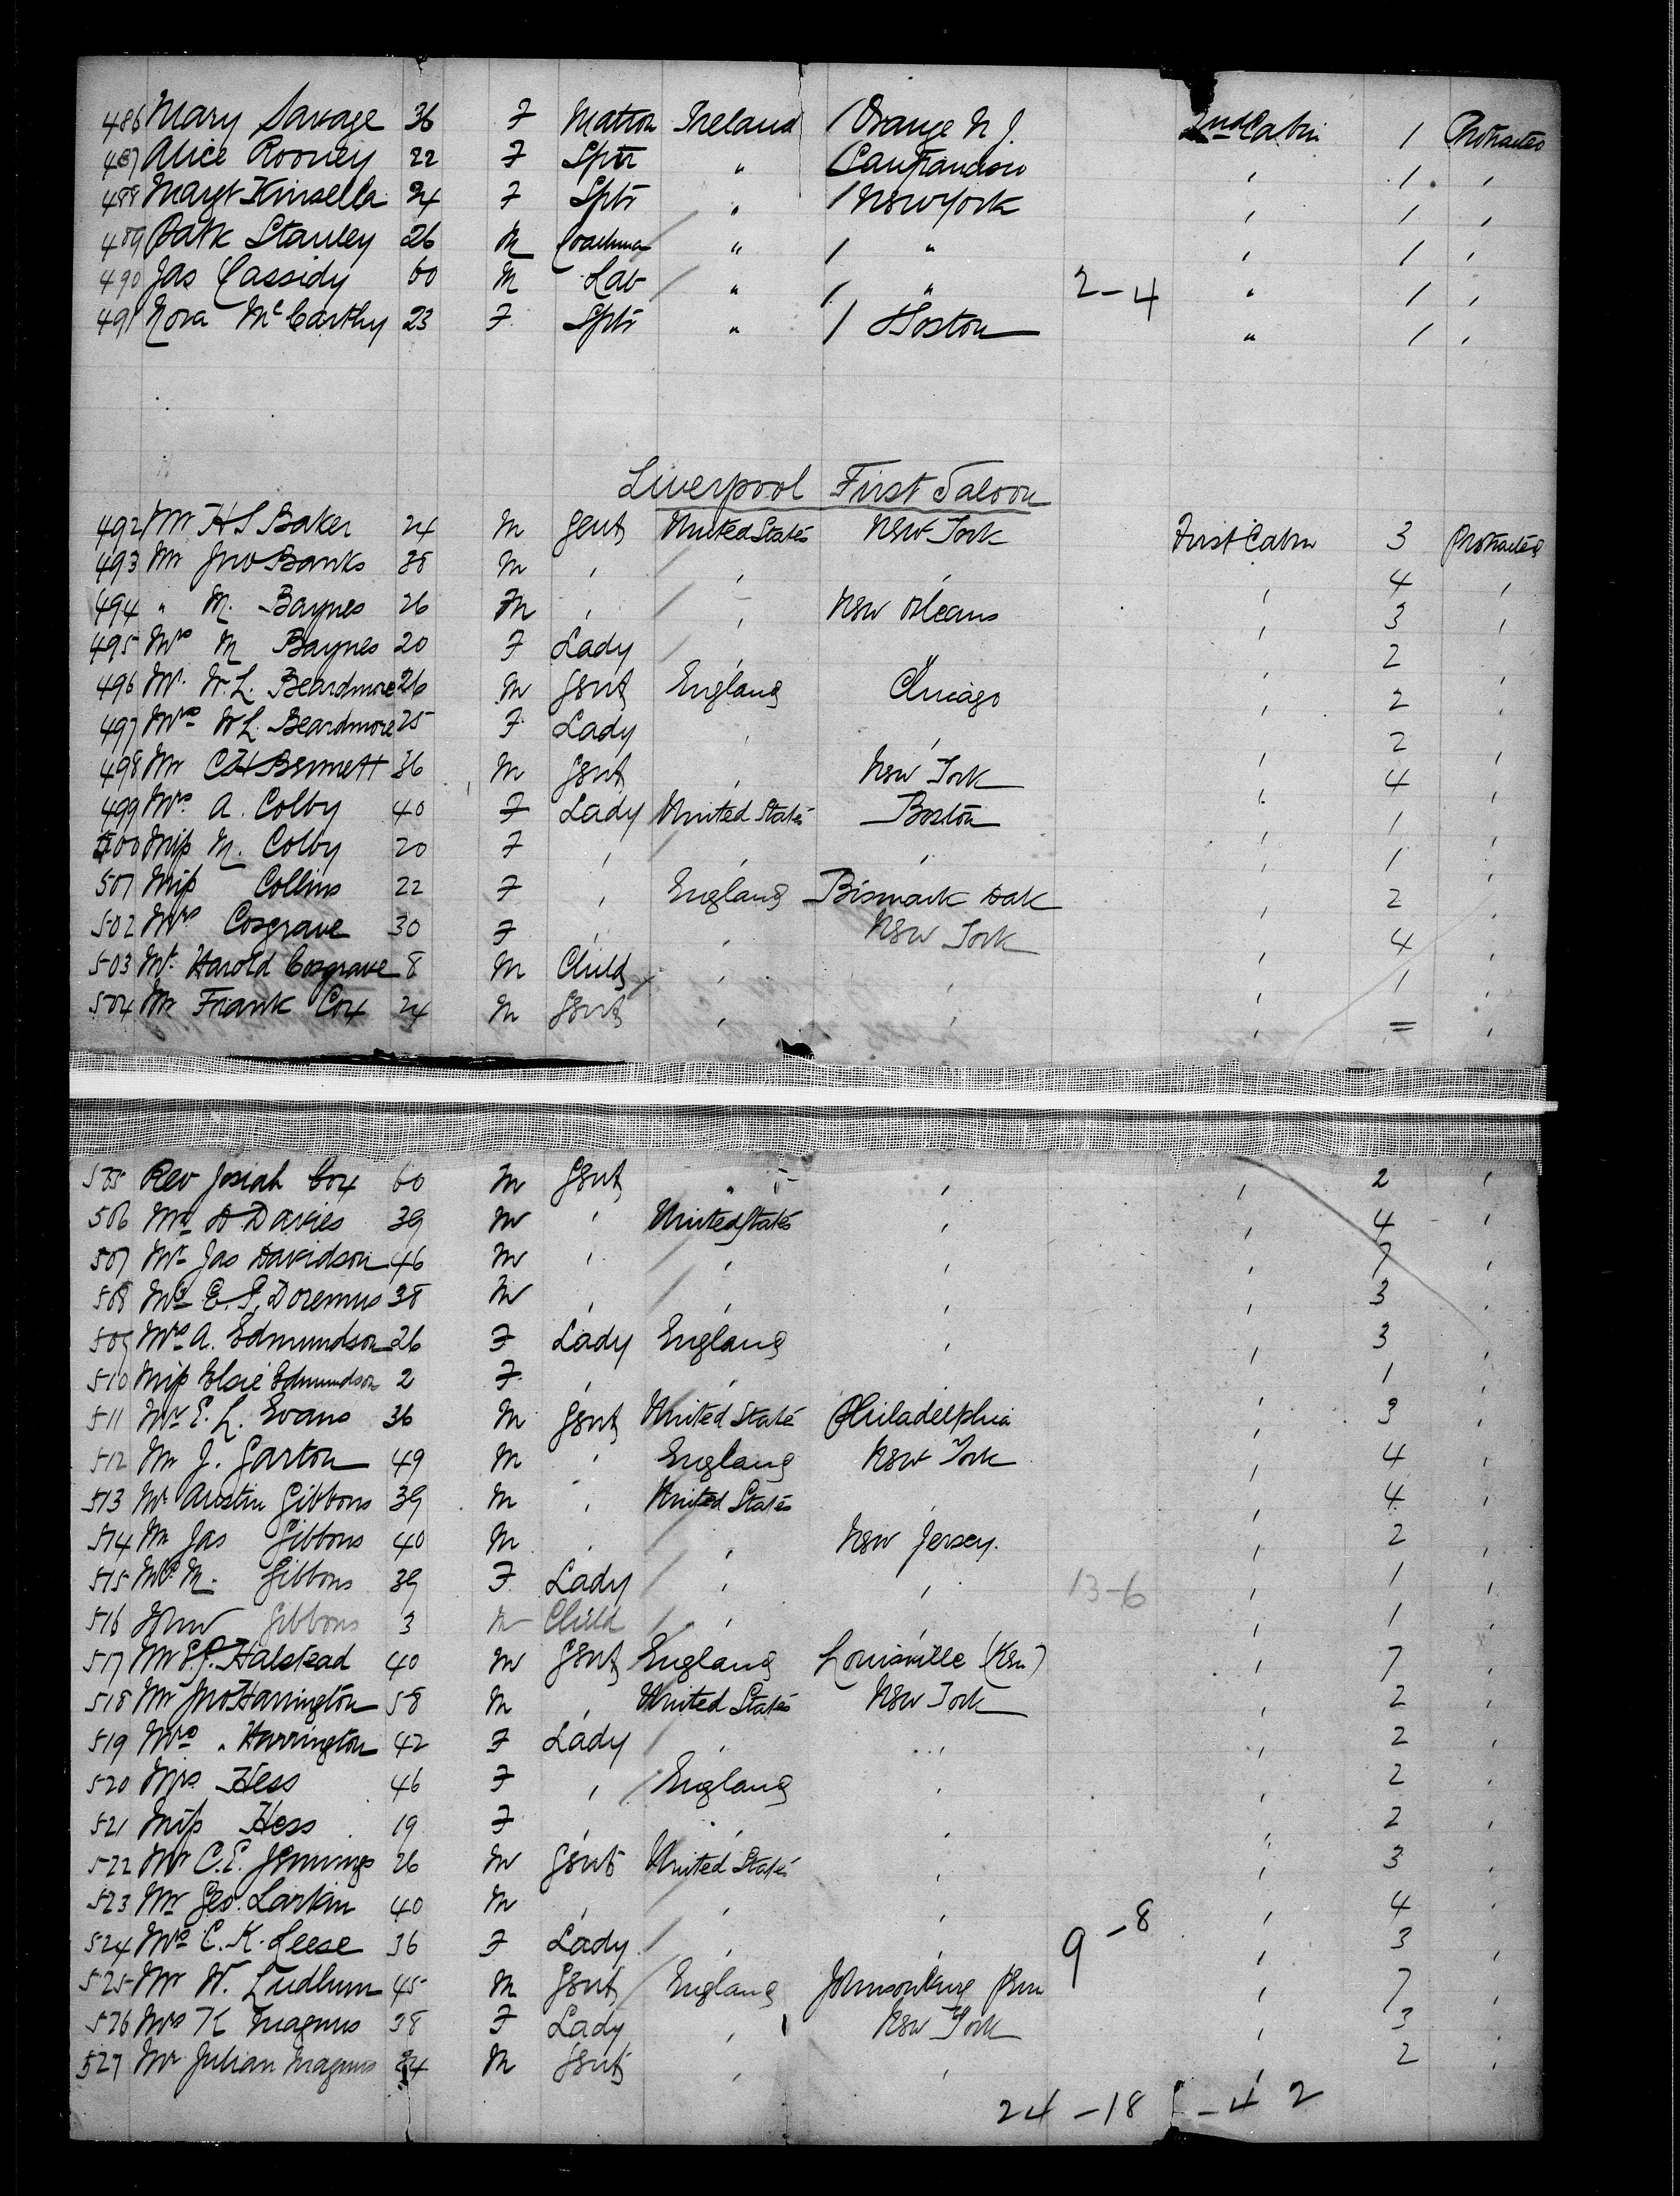 486 Mary Savage 36 F Matron Ireland / Orange N J. 2nd Cabin 1 Protracted
487 Alice Rooney 22 F Sptr " / San Francisco ' 1 '
488 Margt Kinsella 24 F Sptr " / New York ' 1 '
489 Patk Stanley 26 M Coachman " / " ' 1 '
490 Jas Cassidy 60 M Lab " / " 2-4 " 1 '
491 Nora McCarthy 23 F Sptr " / Boston " 1 '
Liverpool First Saloon
492 Mr H S Baker 24 M Gent United States New York First Cabin 3 Protracted
493 Mr Jno Banks 38 M ' ' ' ' 4 '
494 " M. Baynes 26 M ' ' New Orleans ' 3 '
495 Mrs M Baynes 20 F Lady ' " ' 2 '
496 Mr. W. L. Beardmore 26 M Gent England Chicago ' 2 '
497 Mrs W L. Beardmore 25 F Lady ' ' ' 2 '
498 Mr C H Bennett 36 M Gent ' New York ' 4 '
499 Mrs. A. Colby 40 F Lady United States Boston ' 1 '
500 Miss M. Colby 20 F ' ' ' ' 1 '
501 Miss Collins 22 F ' England Bismark Dak ' 2 '
502 Mrs Cosgrave 30 F ' ' New York ' 4 '
503 Mr. Harold Cosgrave 8 M Child ' ' ' 1 '
504 Mr Frank Cox 24 M Gent ' ' ' = '
505 Rev Josiah Cox 60 M Gent " ' ' 2 '
506 Mr D Davies 39 M ' United States ' ' 4 '
507 Mr Jas Davidson 46 M ' ' ' ' 7 '
508 Mr E. P. Doremus 38 M ' ' ' ' 3 '
509 Mrs A. Edmundson 26 F Lady England ' ' 3 '
510 Miss Elsie Edmundson 2 F ' ' ' 1 '
511 Mr E. L. Evans 36 M Gent United States Philadelphia ' 3 '
512 Mr J. Garton 49 M ' England New York ' 4 '
513 Mr Austin Gibbons 39 M ' United States ' ' 4 '
514 Mr Jas Gibbons 40 M ' ' New Jersey. ' 2 '
515 Mrs M. Gibbons 39 F Lady ' ' 13-6 ' 1 '
516 John Gibbons 3 M Child ' ' 1 '
517 Mr E. P. Halstead 40 M Gent England Louisville (Ken) ' 7 '
518 Mr Jno Harrington 58 M ' United States New York ' 2 '
519 Mrs " Harrington 42 F Lady ' ' ' 2 '
520 Mrs Hess 46 F ' England ' ' 2 '
521 Miss Hess 19 F ' ' ' ' 2 '
522 Mr C. E. Jennings 26 M Gent United States ' ' 3 '
523 Mr Geo. Larkin 40 M ' ' ' ' 4 '
524 Mrs C. K. Leese 36 F Lady ' ' 9-8 ' 3 '
525 Mr W. Ludlum 45 M Gent England ' 7 '
526 Mrs K Magnus 38 F Lady ' New York ' 3 '
527 Mr Julian Magnus M Gent ' ' ' 2 '
24-18 -4 2